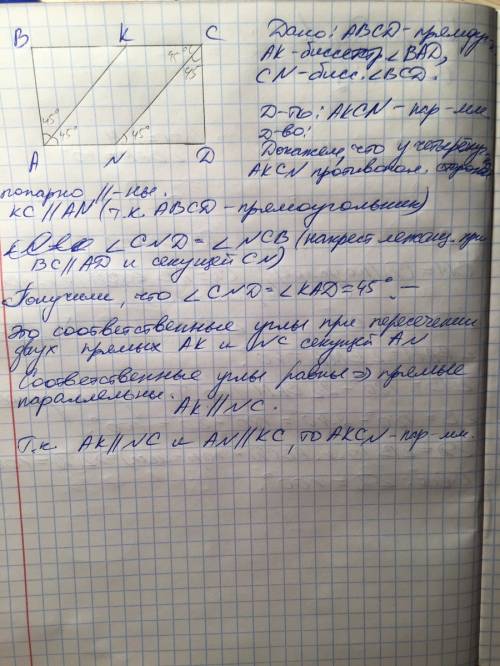 B K C
45° 45
45° 45° 45°
A N D
Дано: ABCD - прямоуг.
AK - биссектр ∠BAD,
CN - бисс. ∠BCD.
Д-ть: AKCN - пар-мм
Д-во:
Докажем, что у четырёхуг.
AKCN противопол. стороны
попарно ||-ны.
KC || AN (т.к. ABCD - прямоугольник)
∠CND = ∠NCB (накрест лежащ. при
BC || AD и секущей CN)
Получили, что ∠CND = ∠KAD = 45°. —
это соответственные углы при пересечении
двух прямых AK и NC секущей AN
Соответственные углы равны => прямые
параллельны.
AK || NC.
Т.к AK || NC и AN || KC, то AKCN - пар-мм.